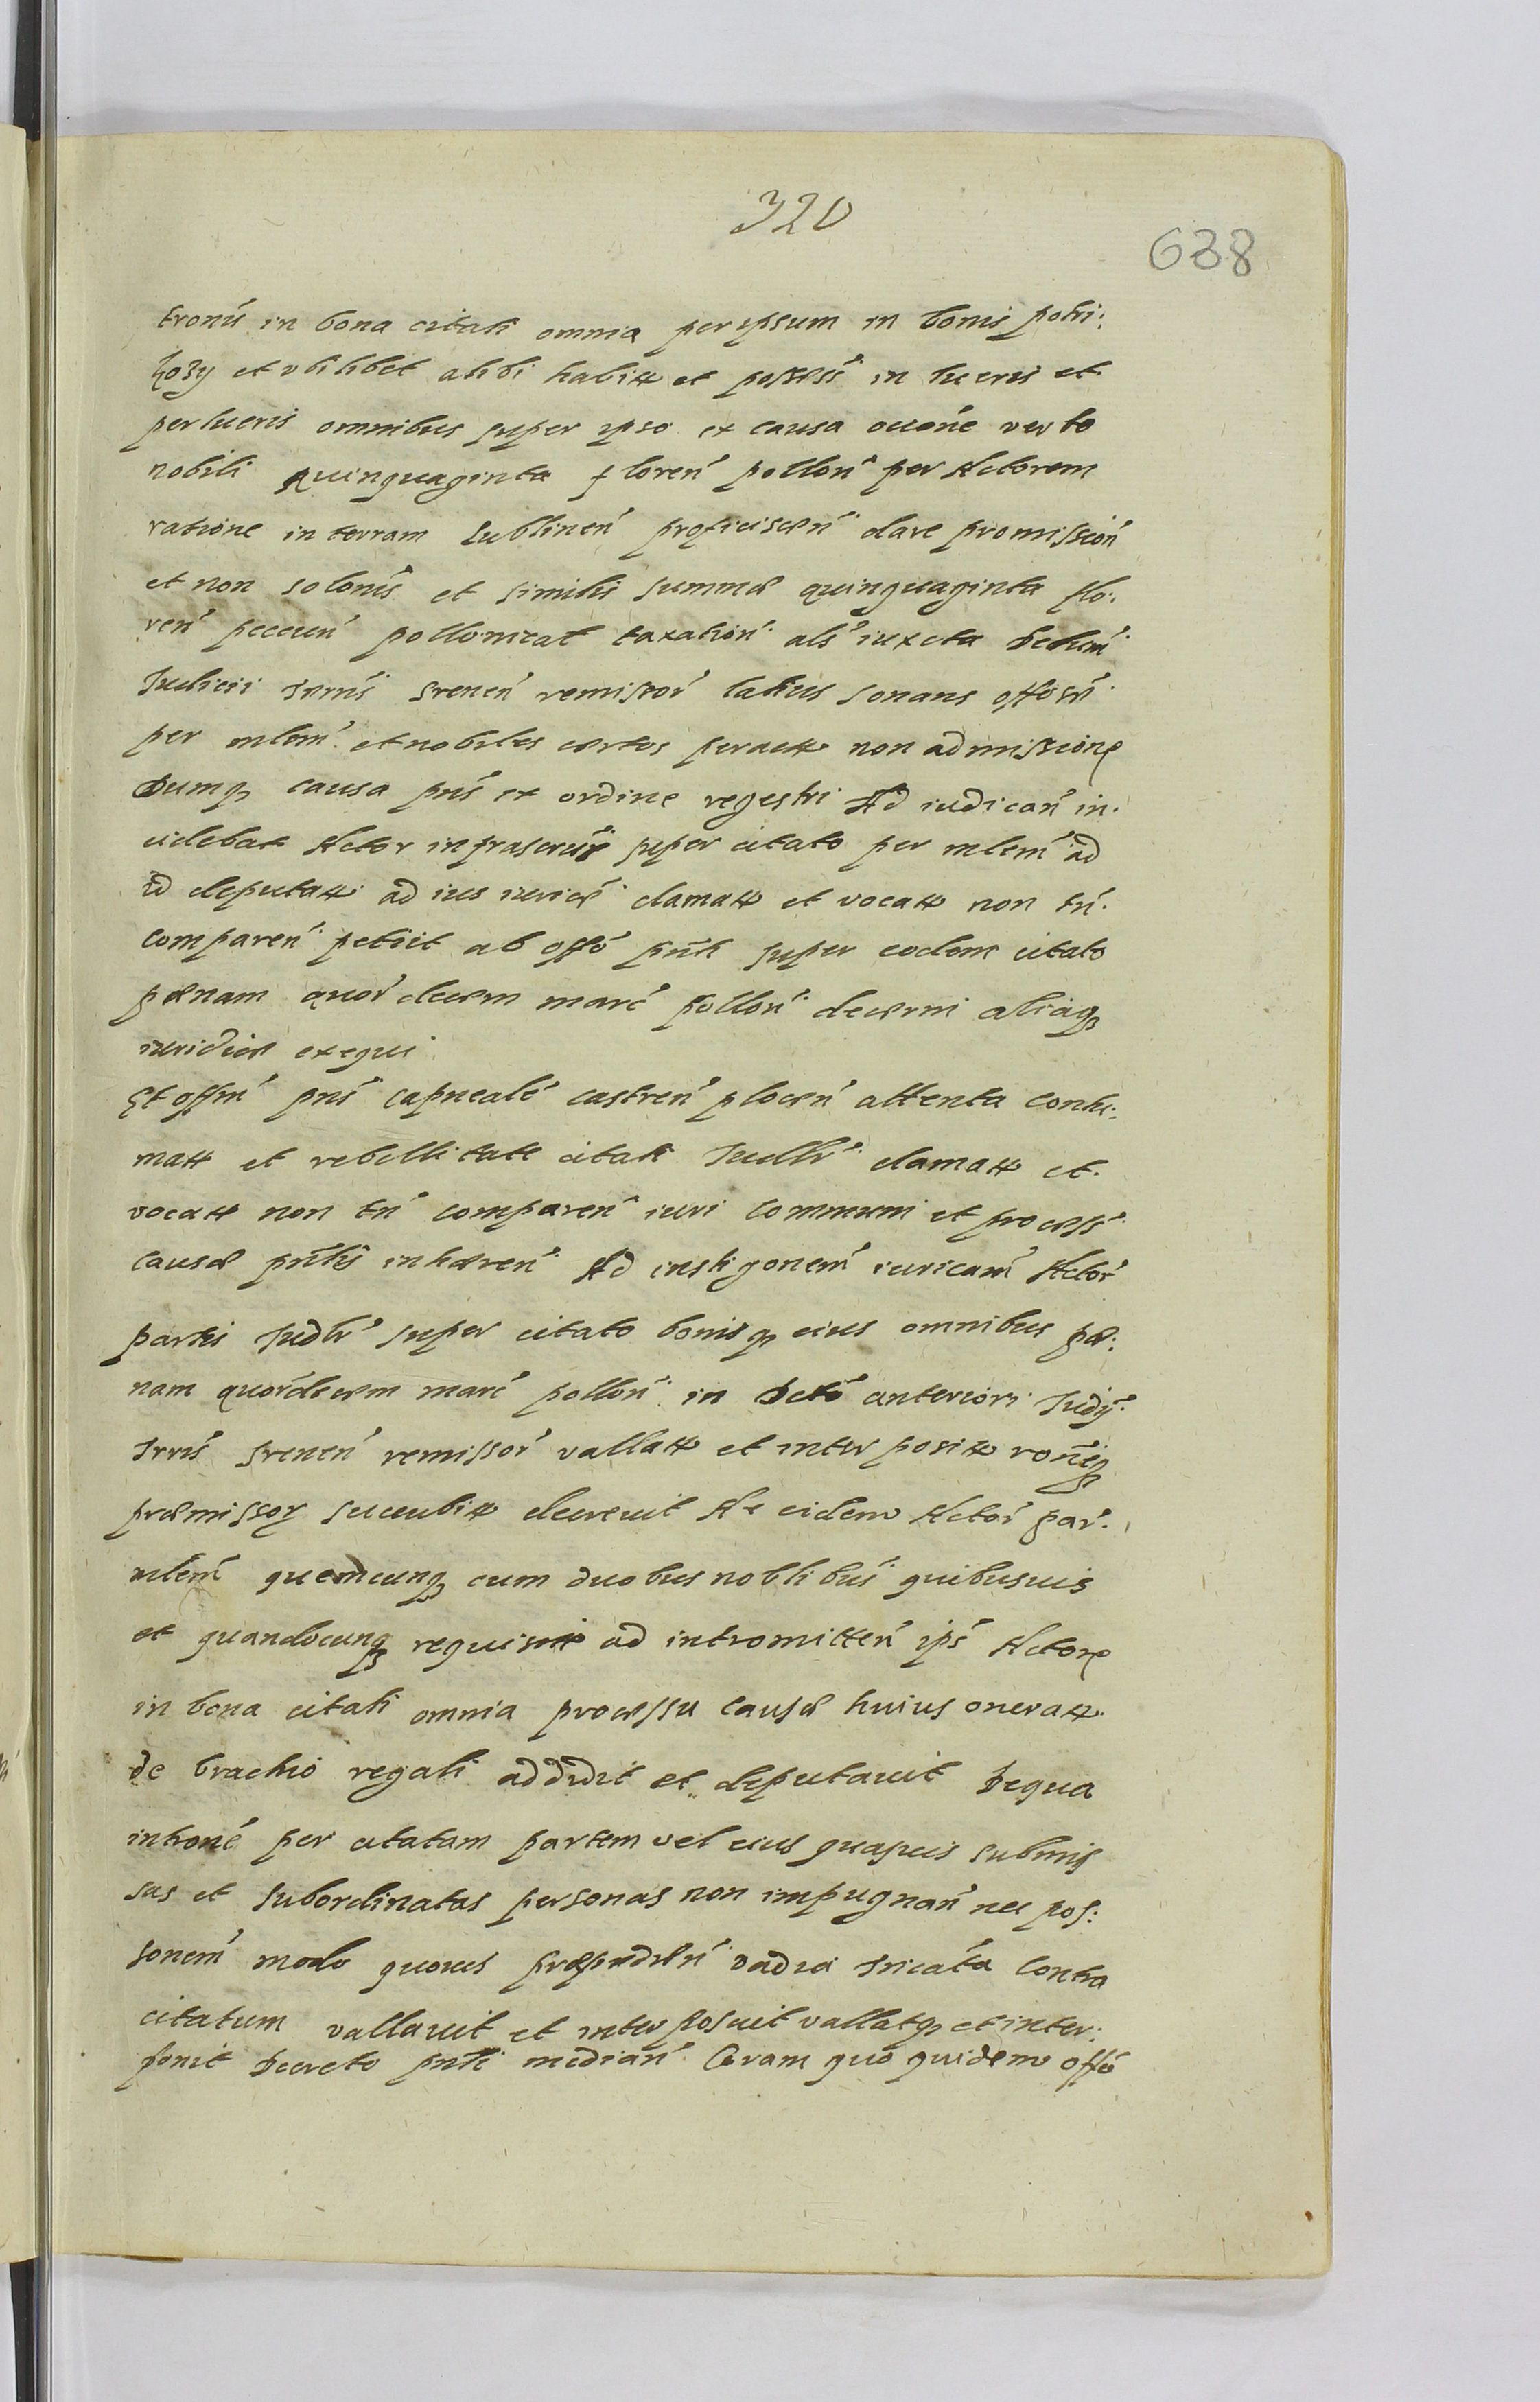 320
638
tronis in bona citati omnia per ipsum in bonis potri:
kozy et vbilibet alibi habitt et possess in lucris et
perlucris omnibus super ipso ex causa occone verbo
nobili quinquaginta floren pollon per Actorem
ratione in terram Lublinen proficiscen dare promission
et non solonis et similis summæ quinquaginta flo:
ren pecun pollonicat taxation als iuxta Dctum
Judicii Srenen remissor latius sonans offosi
per mlem et nobiles certos peractt non admissione
Dumq causa pns ex ordine regestri Ad iudican in:
cidebat Actor infrascrus super citato per mlem ad
id deputatt ad ius iurice clamatt et vocatt non tn
comparen petiit ab offo pnti super eodem citato
pænam quor decem marc pollon decerni aliaq
iuridice exequi
Et offm pns capneale castren plocen attenta contu:
matt et rebellitate citati Judlr clamatt et
vocatt non tn comparen iuri communi et process
causæ pntis inhæren Ad instigonem iuricam Actor
partis Judlr super citato bonisq eius omnibus pæ:
nam quordecem marc pollon in Dcto anteriori Judy
Srenen remissor vallatt et interpositt roneq
præmissoz succubitt decreuit Ac eidem Actor par
mlem quemcunq cum duobus noblibus quibusuis
et quandocunq requisitt ad intromitten ips Actore
in bona citati omnia processu causæ huius oneratt
de brachio regali addidit et deputauit Dequa
introne per citatam partem vel eius quasuis submis
sas et subordinatas personas non impugnan nec pos:
sonem modo quouis præpedien vadia tricata contra
citatum vallauit et interposuit vallatq et inter:
ponit Decreto pnti median Coram quo quidem offo